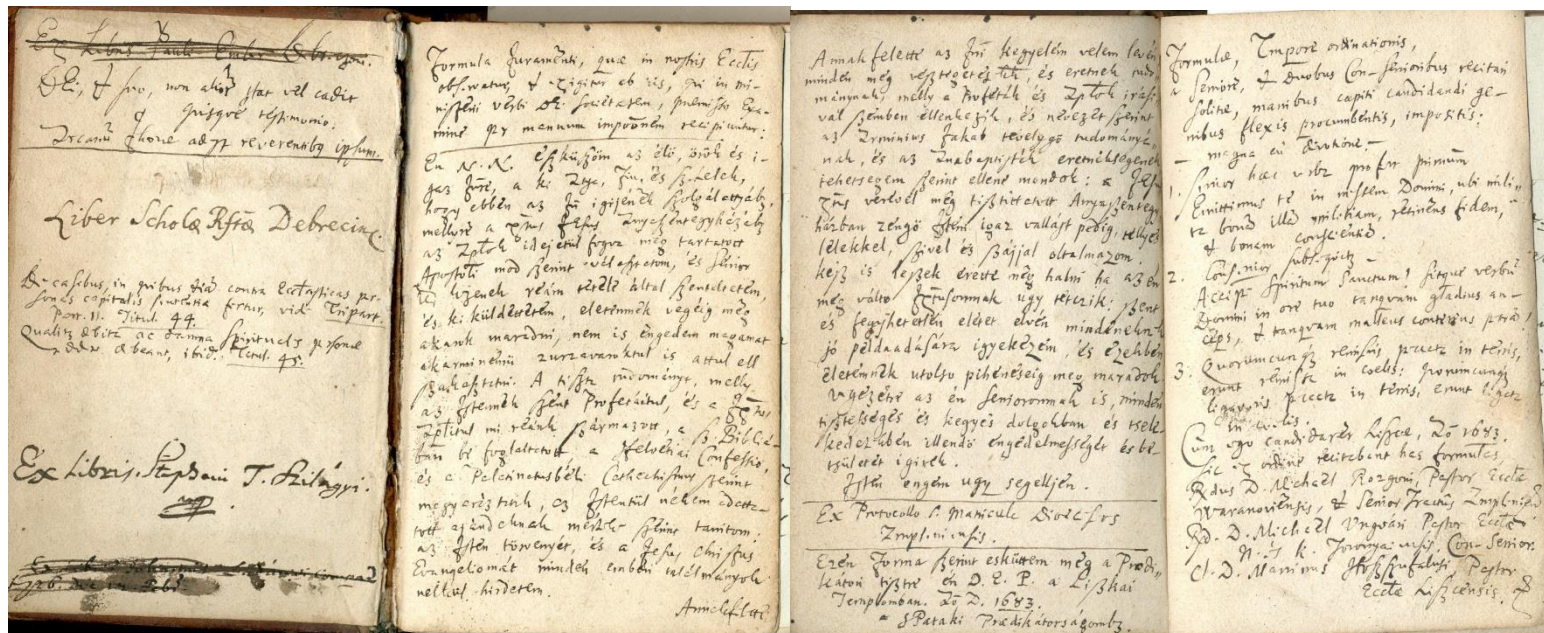 Ex Libris Pauli Ember Debreceni.
stat vel cadit
testimonio.
Liber Scholæ Rftæ Debrecinæ.
De casibus, in quibus contra Ecctasticas per-
sonas capitalis sententia fertur, vid. Tripart.
Part. II. Titul. 44.
ac damna Spirituales personæ
debeant, ibid. Titul. 45.
Ex Libris. Stephani T. Szilágyi.
mp.
Formula Juramenti, quæ in nostris Ecctis
observatur, & exigitur ab iis, qui in mi-
nisterii verbi societatem, præmisso Exa-
mine per manuum recipiuntur:
En N. N. Esküszöm az élő, örök és i-
gaz Istenre, a ki Atya, Fiu, és Sz. Lélek,
hogy ebben az Ur igijének szolgálattyáb
mellyre a Xtus Jesus Anyaszentegyházáb
az idejetül fogva meg tartatott
Apostoli mód szerint választatom, és Senior
Vr kezenek reám tétele által szenteltetem,
és ki küldettetem, életemnek végéig meg
akarok maradni, nem is engedem magamat
akarminémü zurzavaroktul is attul ell
szakasztatni. A tiszta tudományt, melly
az Istennek szent Profetáitul, és a
mi reánk származott, a Sz. Bibliá-
ban bé foglaltatott, a Helvetiai Confessio,
és a Palatinatusbéli Cathechismus szerint
megyerésztetik, az Istentül nékem adatta-
tott ajándéknak mérteke szerint tanitom.
az Isten törvenyét, és a Jesus Christus
Evangeliomát minden emberi találmányok
nélkül hirdetem.
Annakfelette
Annak felette az Ur kegyelme velem levén
minden meg vesztegetés, és eretnek tudo-
mánynak, melly a Proféták és irási-
val szemben ellenkezik, és nevezet szerint
az Arminius Jakab tévelygö tudományá-
nak, és az Anabaptisták eretnekségenek
tehetségem szerint ellene mondok: a Jesus
Xtus vérével meg tisztittatott Anyaszentegy-
házban zengö Isteni igaz vallást pedig, tellyes
lélekkel, szivel és szájjal oltalmazom.
kész is leszek érette meg halni ha az én
meg váltó Jesusomnak ugy tetszik: szent
és fegyhetetlen életet elvén mindeneknek
jó példaadására igyekezem, és ezekben
életemnek utolso pihenéséig meg maradok.
Vegezetre az én Senioromnak is, minden
tisztességes és kegyes dolgokban és tsele-
kedetekben illendő engedelmességet és be-
tsületet igirek.
Isten engem ugy segelljen.
Ex Protocollo s. Matricula Dioeceseos
Zempliniensis.
Ezen forma szerint esküttem meg a Prædi-
kátori tisztre én D. E. P. a Liszkai
Templomban. Ao D. 1683.
a SPataki Prædikátorságombz.
Formulæ, Tempore ordinationis,
a Seniore, & duobus Con-Senioribus recitari
solitæ, manibus capiti candidandi ge-
nibus flexis procumbentis, impositis:
magna cum devotione.
1. Senior hæc verba profert primum
Emittimus te in messem Domini, ubi mili-
tes bonam illam militiam, retinens fidem,
& bonam conscientiam.
2. Con-Senior subjicit
Accipe Spiritum Sanctum! sitque verbum
Domini in ore tuo tanquam gladius an-
ceps, & tanquam malleus conterens petras!
3. Quorumcunque remiseris peccata in terris,
erunt remissa in coelis: quorumcunque
ligaveris peccata in terris, erunt ligata
in coelis.
Cum ego candidarer Liszcæ, Ao 1683.
sic ex ordine recitabant has formulas
Rdus D. Michaël Rozgoni, Pastor Ecctæ
Varanoviensis, & Senior Tractus Zemplinien.
Rd. D. Michaël Ungvári Pastor Ecctæ
Con-Senior.
Cl. D. Martinus Pastor
Ecctæ Liszcensis.